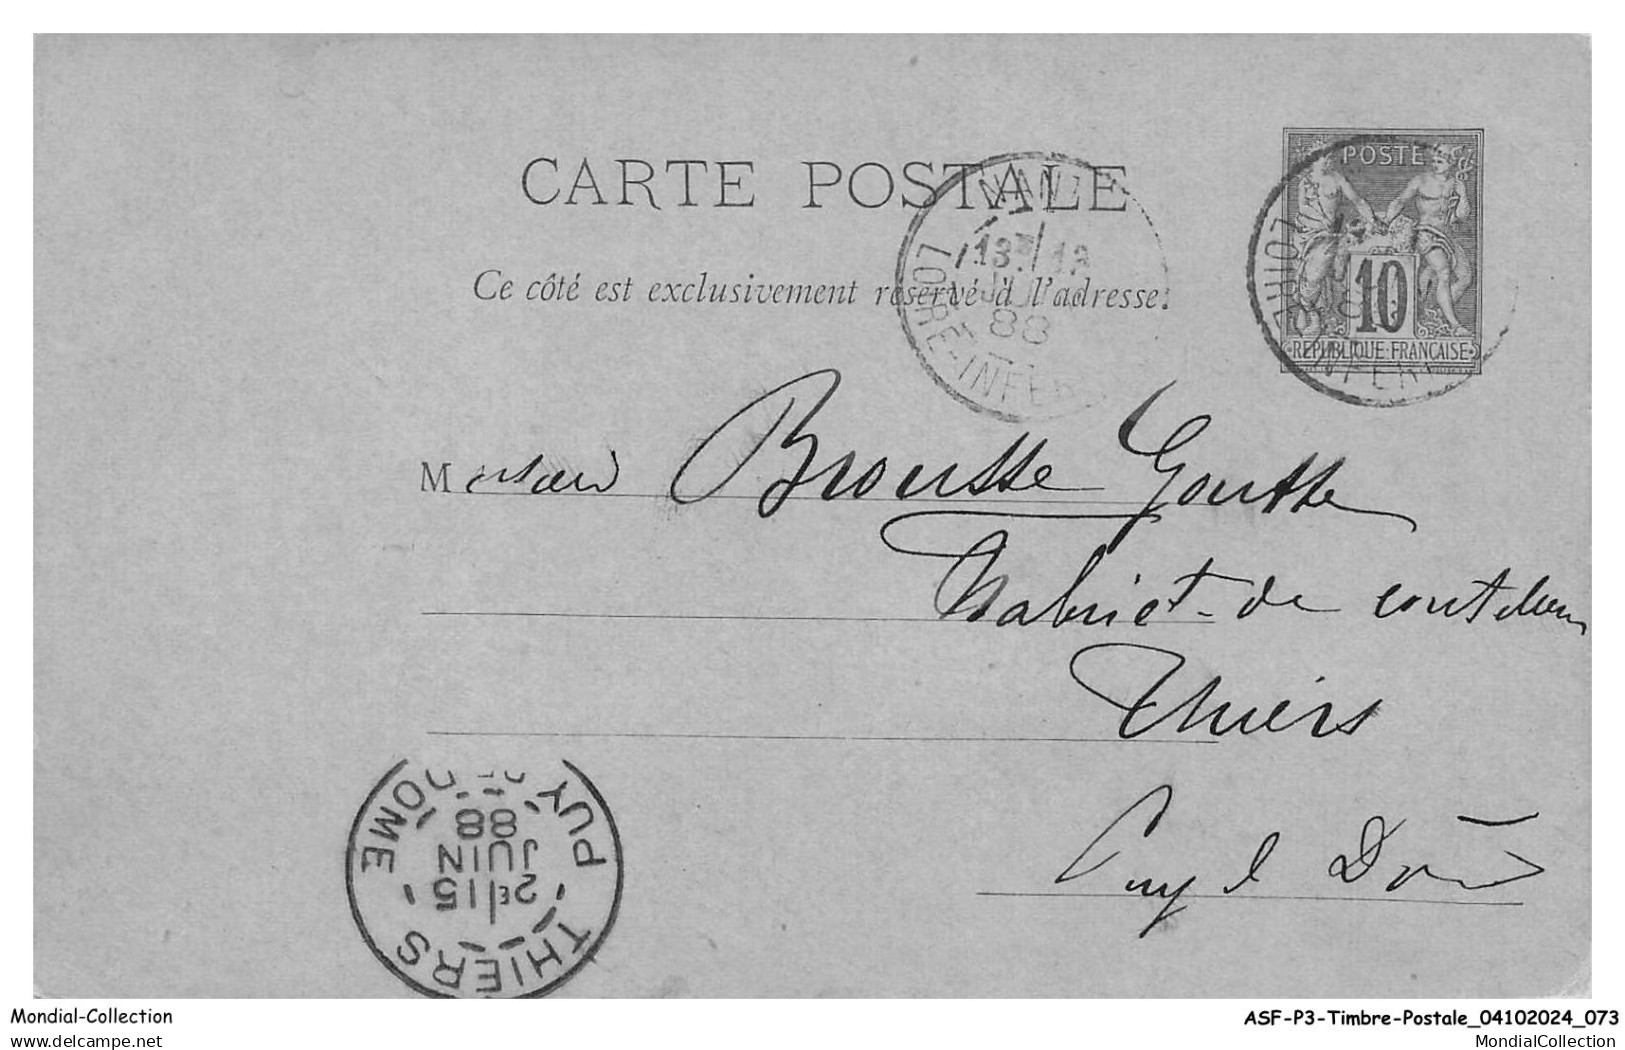 CARTE POSTALE
Ce côté est exclusivement réservé à l'adresse.
POSTE
10
REPUBLIQUE FRANÇAISE
NANTES
88
LOIRE-INFER
LOIRE INFER
Monsieur Brousse Goutte
fabrict de
Thiers
Puy de Dôme
THIERS
2E/15
JUIN
88
PUY DE DOME
Mondial-Collection
ASF-P3-Timbre-Postale_04102024_073
www.delcampe.net
MondialCollection